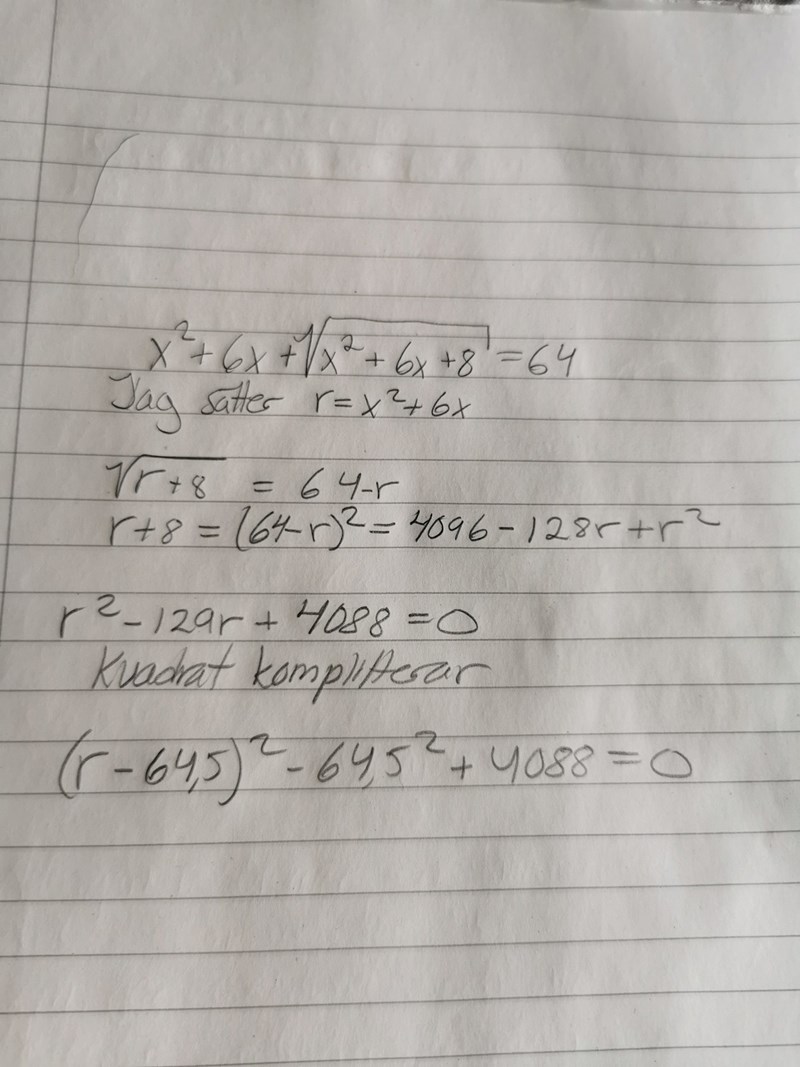 x²+6x+√(x²+6x+8) = 64
Jag sätter r = x²+6x
√(r+8) = 64-r
r+8 = (64-r)² = 4096 - 128r + r²
r² - 129r + 4088 = 0
Kvadrat komplitterar
(r-64,5)² - 64,5² + 4088 = 0